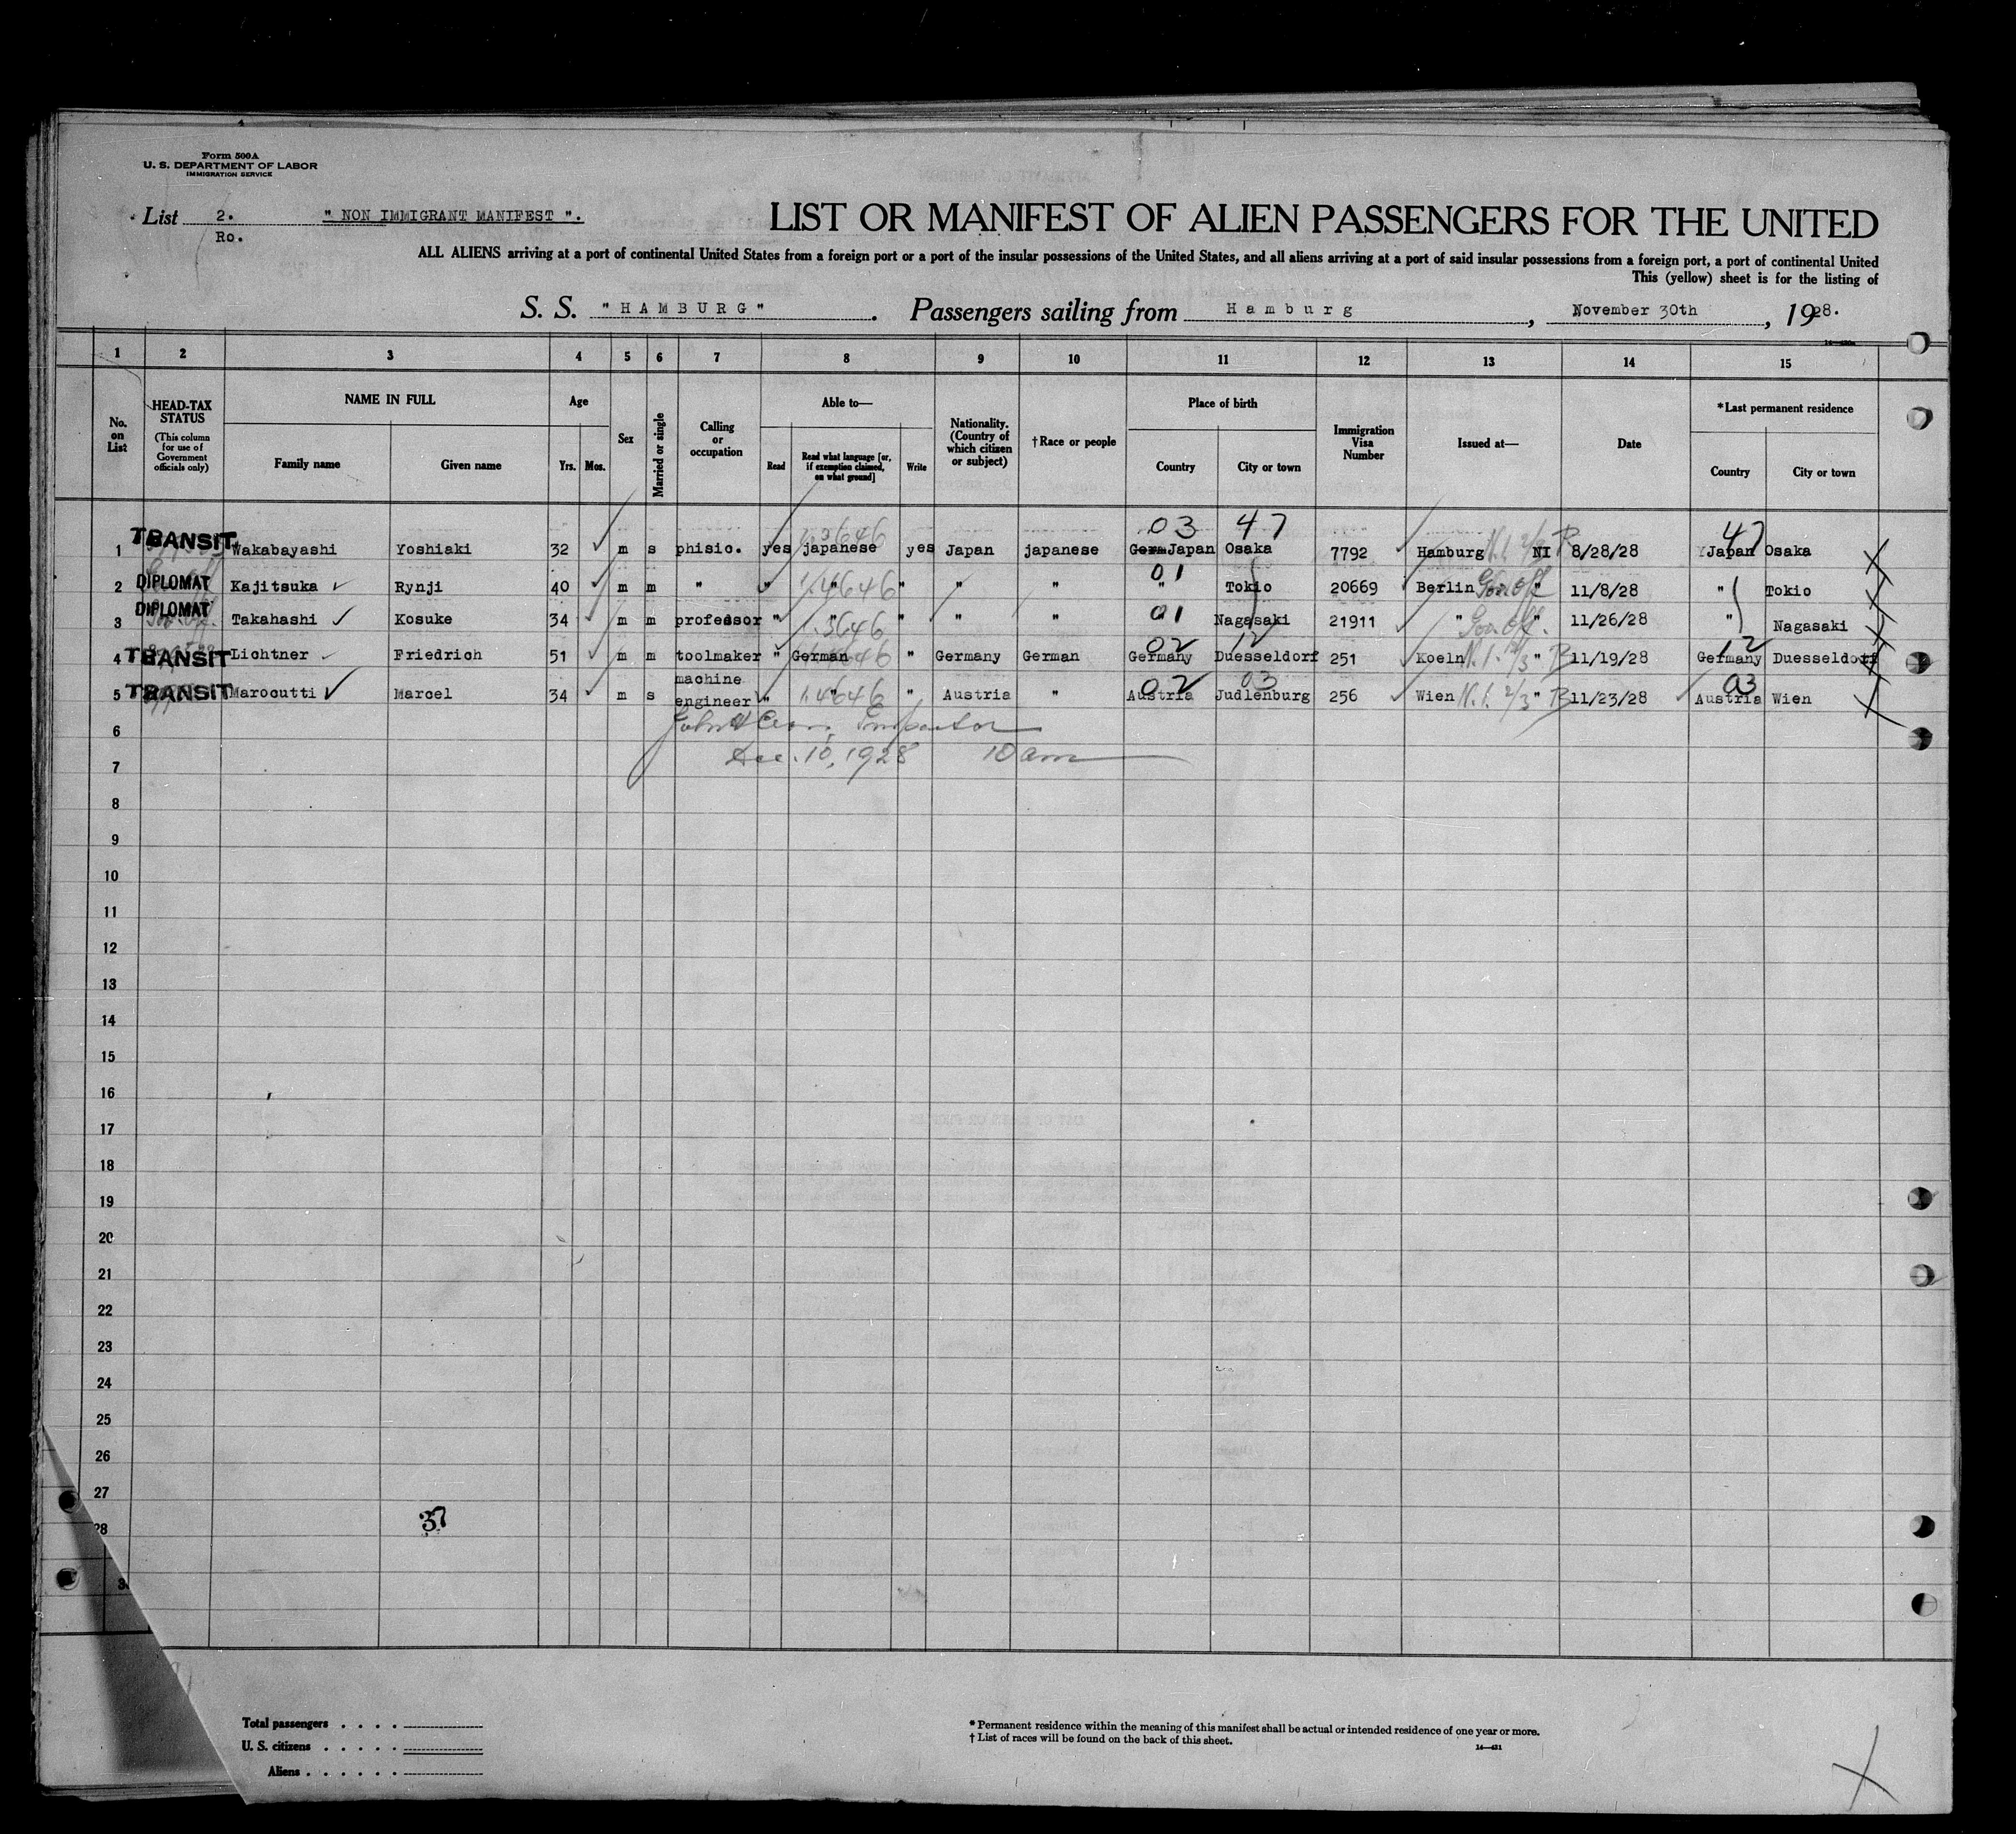 Form 500A
U. S. DEPARTMENT OF LABOR
IMMIGRATION SERVICE
List 2. " NON IMMIGRANT MANIFEST ".
Ro.
LIST OR MANIFEST OF ALIEN PASSENGERS FOR THE UNITED
ALL ALIENS arriving at a port of continental United States from a foreign port or a port of the insular possessions of the United States, and all aliens arriving at a port of said insular possessions from a foreign port, a port of continental United
This (yellow) sheet is for the listing of
S. S. "HAMBURG" . Passengers sailing from Hamburg , November 30th , 1928.
1 2 3 4 5 6 7 8 9 10 11 12 13 14 15
No. on List
HEAD-TAX STATUS (This column for use of Government officials only)
NAME IN FULL
Family name Given name
Age
Yrs. Mos.
Sex
Married or single
Calling or occupation
Able to—
Read Read what language [or, if exemption claimed, on what ground] Write
Nationality. (Country of which citizen or subject)
†Race or people
Place of birth
Country City or town
Immigration Visa Number
Issued at—
Date
*Last permanent residence
Country City or town
03 47 47
1 TRANSIT Wakabayashi Yoshiaki 32 m s phisic. yes japanese yes Japan japanese Germ Japan Osaka 7792 Hamburg NI 8/28/28 Japan Osaka
01
2 DIPLOMAT Kajitsuka Rynji 40 m m " " " " " " " Tokio 20669 Berlin Gov. off " 11/8/28 " Tokio
01
3 DIPLOMAT Takahashi Kosuke 34 m m professor " " " " " " Nagasaki 21911 " Gov. off. " 11/26/28 " Nagasaki
02 12 12
4 TRANSIT Lichtner Friedrich 51 m m toolmaker " German " Germany German Germany Duesseldorf 251 Koeln N.I. " 11/19/28 Germany Duesseldorf
02 03 03
5 TRANSIT Marocutti Marcel 34 m s machine engineer " " " Austria " Austria Judlenburg 256 Wien N.I. " 11/23/28 Austria Wien
Inspector
Dec. 10, 1928 10 am
6
7
8
9
10
11
12
13
14
15
16
17
18
19
20
21
22
23
24
25
26
27
28
37
3
Total passengers . . . .
U. S. citizens . . . . .
Aliens . . . . . .
* Permanent residence within the meaning of this manifest shall be actual or intended residence of one year or more.
† List of races will be found on the back of this sheet.
14—421